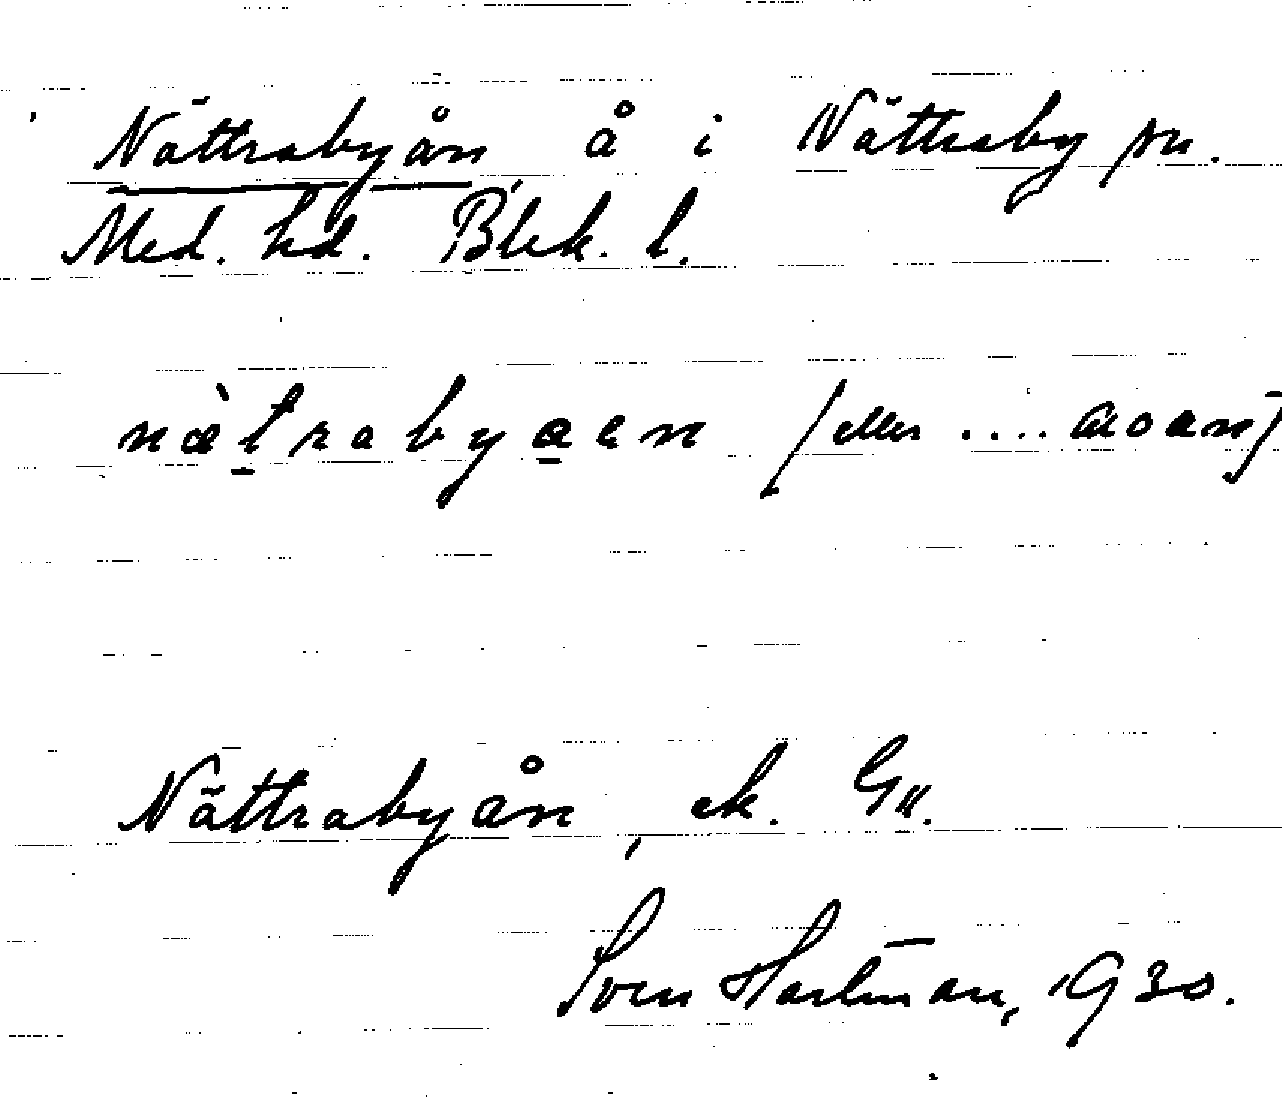 Nättrabyån å i Nättraby sn.
Med. hd. Blek. l.
nätrabyaen (eller .... aoen)
Nättrabyån, ek. Gk.
Sven Hartman, 1930.